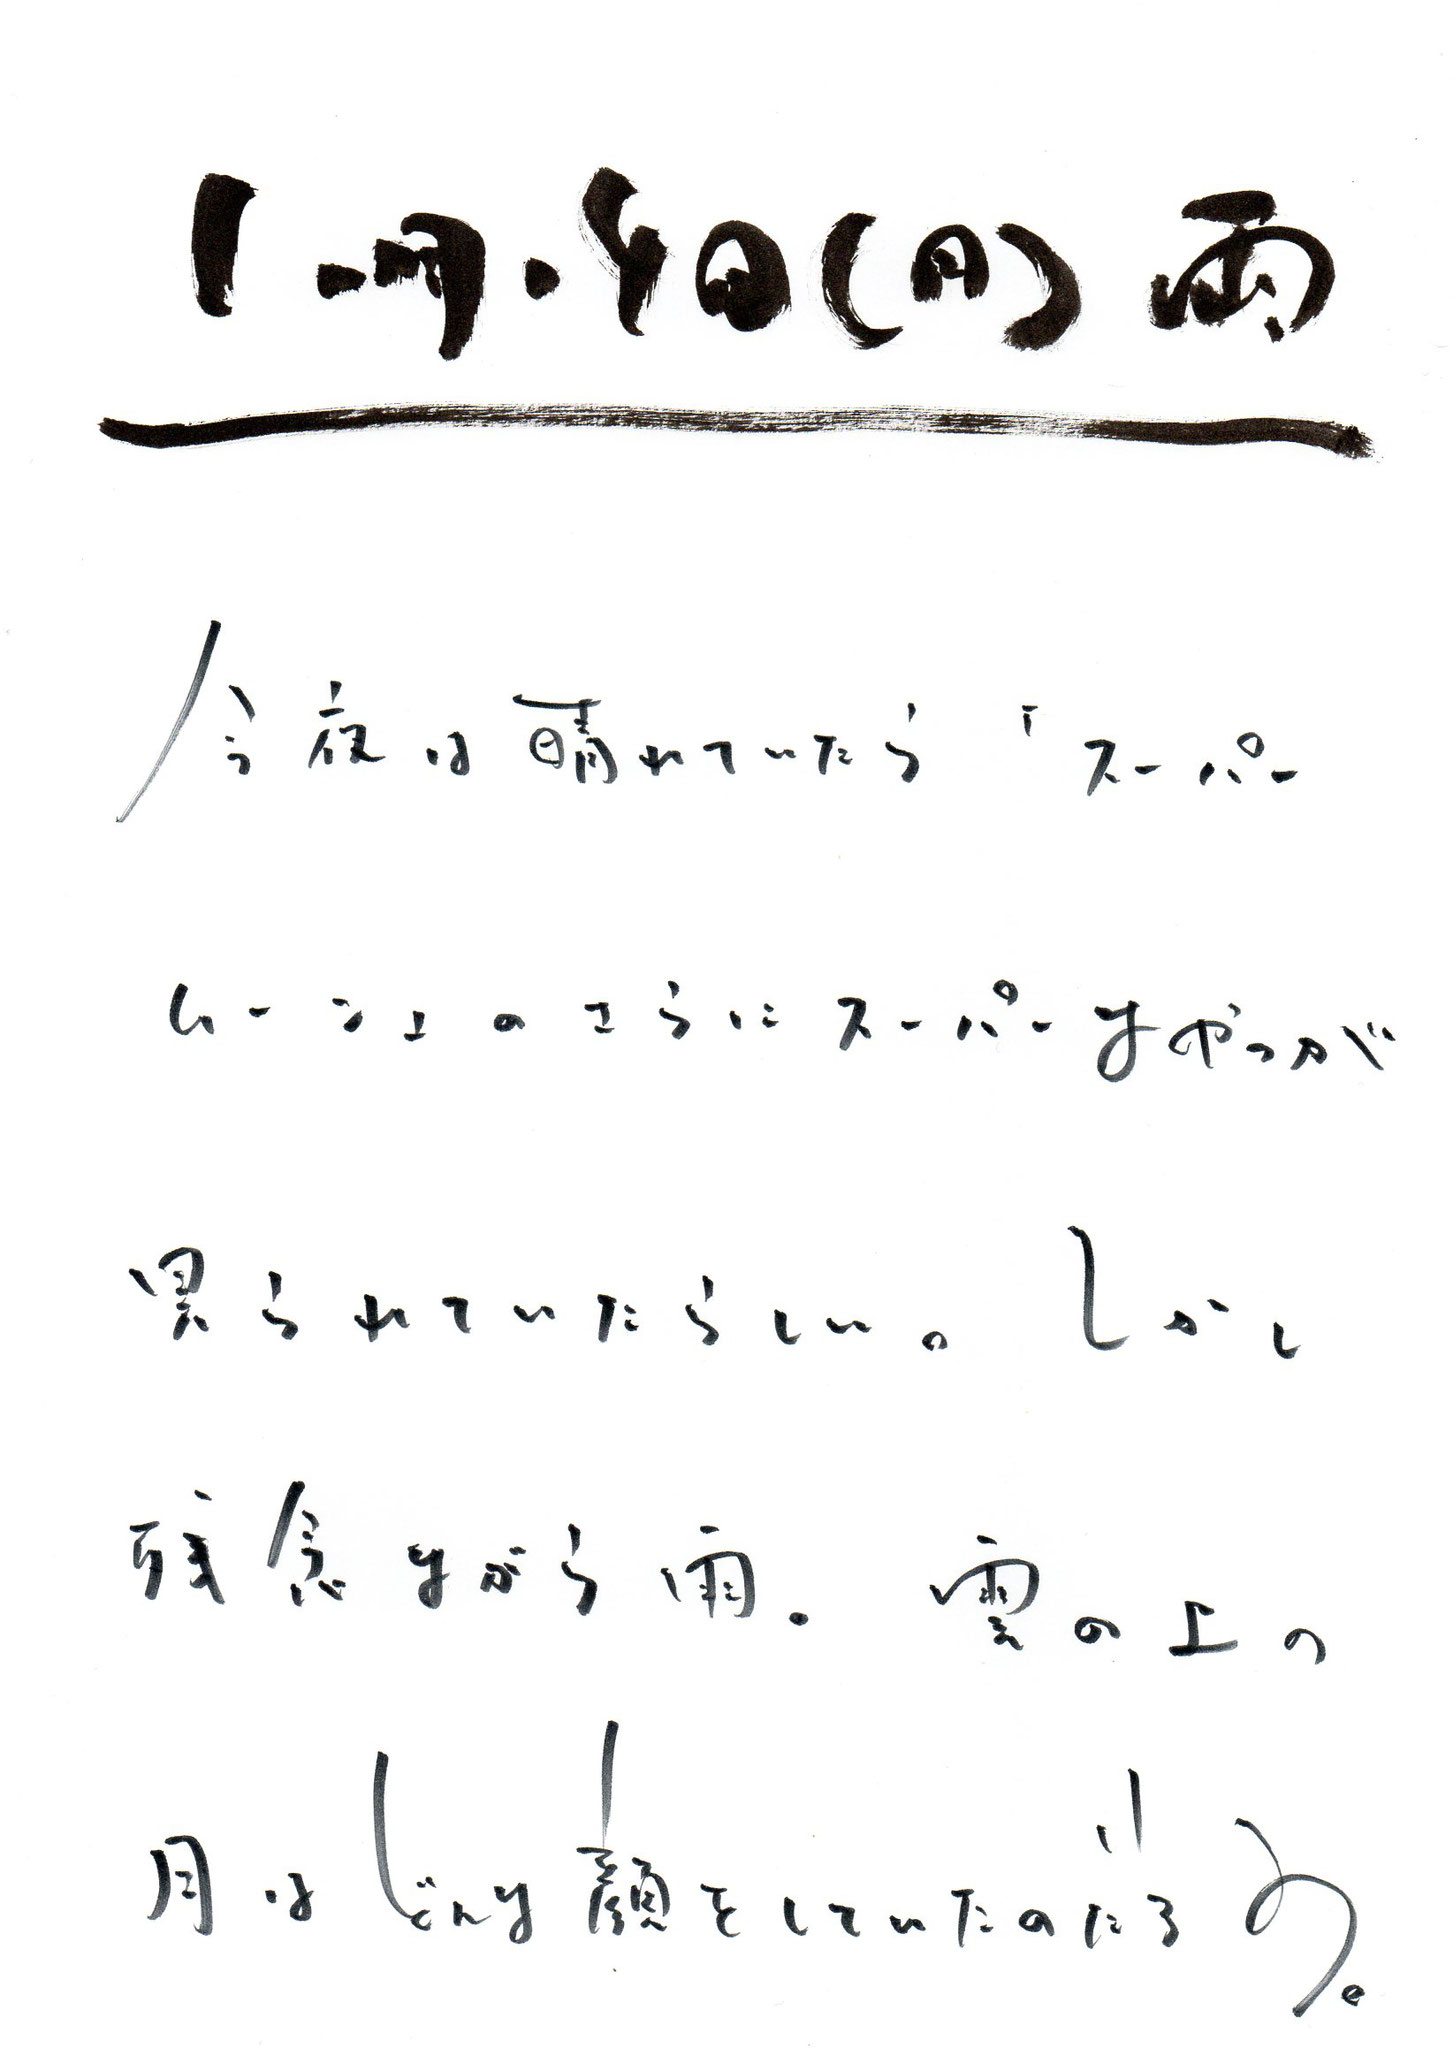 11月14日(月) 雨
今夜は晴れていたら「スーパー
ムーン」のさらにスーパーなやつが
見られていたらしい。しかし
残念ながら雨。雲の上の
月はどんな顔をしていたのだろう。